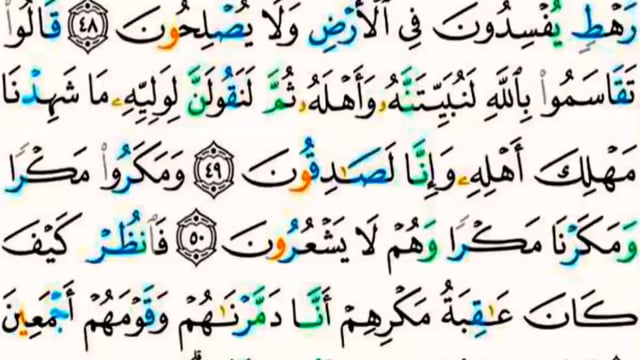 رَهْطٍ يُفْسِدُونَ فِي ٱلْأَرْضِ وَلَا يُصْلِحُونَ ٤٨ قَالُوا۟
تَقَاسَمُوا۟ بِٱللَّهِ لَنُبَيِّتَنَّهُۥ وَأَهْلَهُۥ ثُمَّ لَنَقُولَنَّ لِوَلِيِّهِۦ مَا شَهِدْنَا
مَهْلِكَ أَهْلِهِۦ وَإِنَّا لَصَٰدِقُونَ ٤٩ وَمَكَرُوا۟ مَكْرًا
وَمَكَرْنَا مَكْرًا وَهُمْ لَا يَشْعُرُونَ ٥٠ فَٱنظُرْ كَيْفَ
كَانَ عَٰقِبَةُ مَكْرِهِمْ أَنَّا دَمَّرْنَٰهُمْ وَقَوْمَهُمْ أَجْمَعِينَ